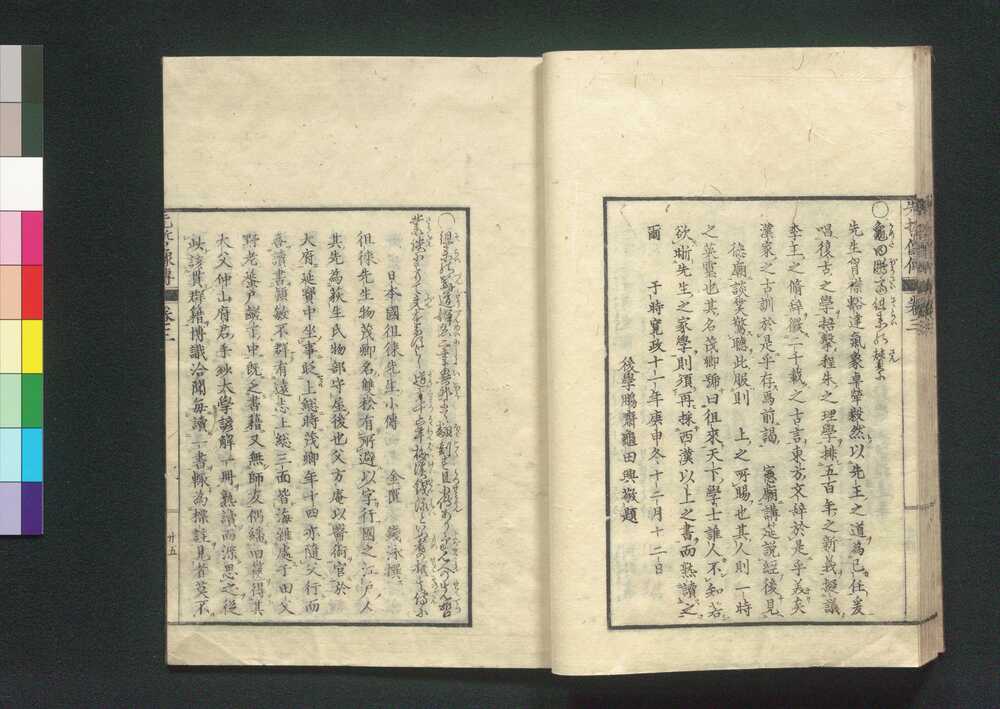 先哲像傳 卷三
○龜田鵬齋徂來の賛に
先生胷襟豁達氣象卓犖毅然以先王之道為己任爰
唱復古之學掊擊程朱之理學排五百年之新義擬議
李王之脩辭徵二千載之古言東方文辭於是乎美矣
漢家之古訓於是乎存焉前謁 憲廟講筵說經後見
德廟談笑驚聽此服則 上之所賜也其人則一時
之英靈也其名茂卿誦曰徂來天下學士誰人不知若
欲晰先生之家學則須再採西漢以上之書而熟讀之
爾 于時寛政十一年庚申冬十二月十二日
後學鵬齋龜田興敬題
日本國徂徠先生小傳
金匱 錢泳撰
徂徠先生物茂卿名雙松有所避以字行國之江戶人
其先為荻生氏物部守屋後也父方庵以醫術官於
大府延寶中坐事貶上總時茂卿年十四亦隨父行而
喜讀書穎敏不群有遠志上總三面皆海雜處于田父
野老蜑戶之中既乏書籍又無師友偶繙田篋得其
大父仲山府君手抄大學諺解一冊熟讀而深思之從
此該貫群籍博識洽聞每讀一書輒為標註見者莫不
卷三
廿五